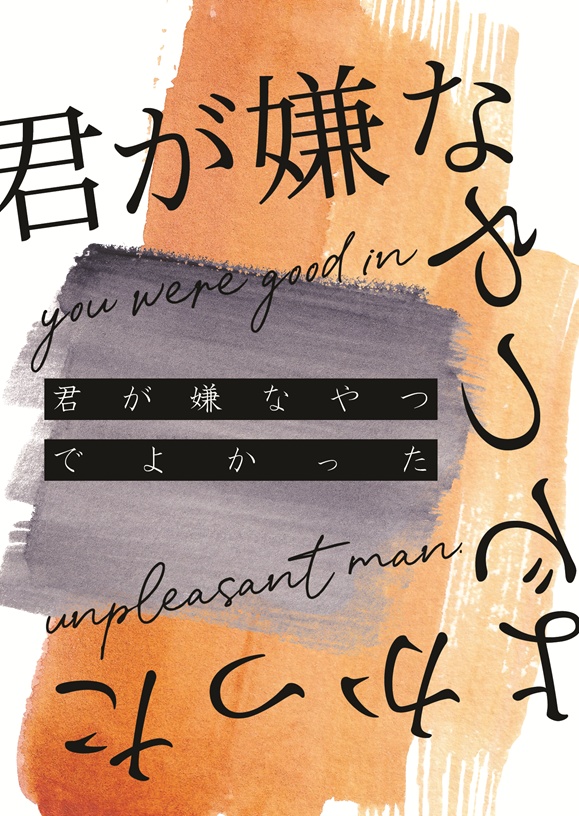 君が嫌なやつでよかった
you were good in
君が嫌なやつ
でよかった
unpleasant man.